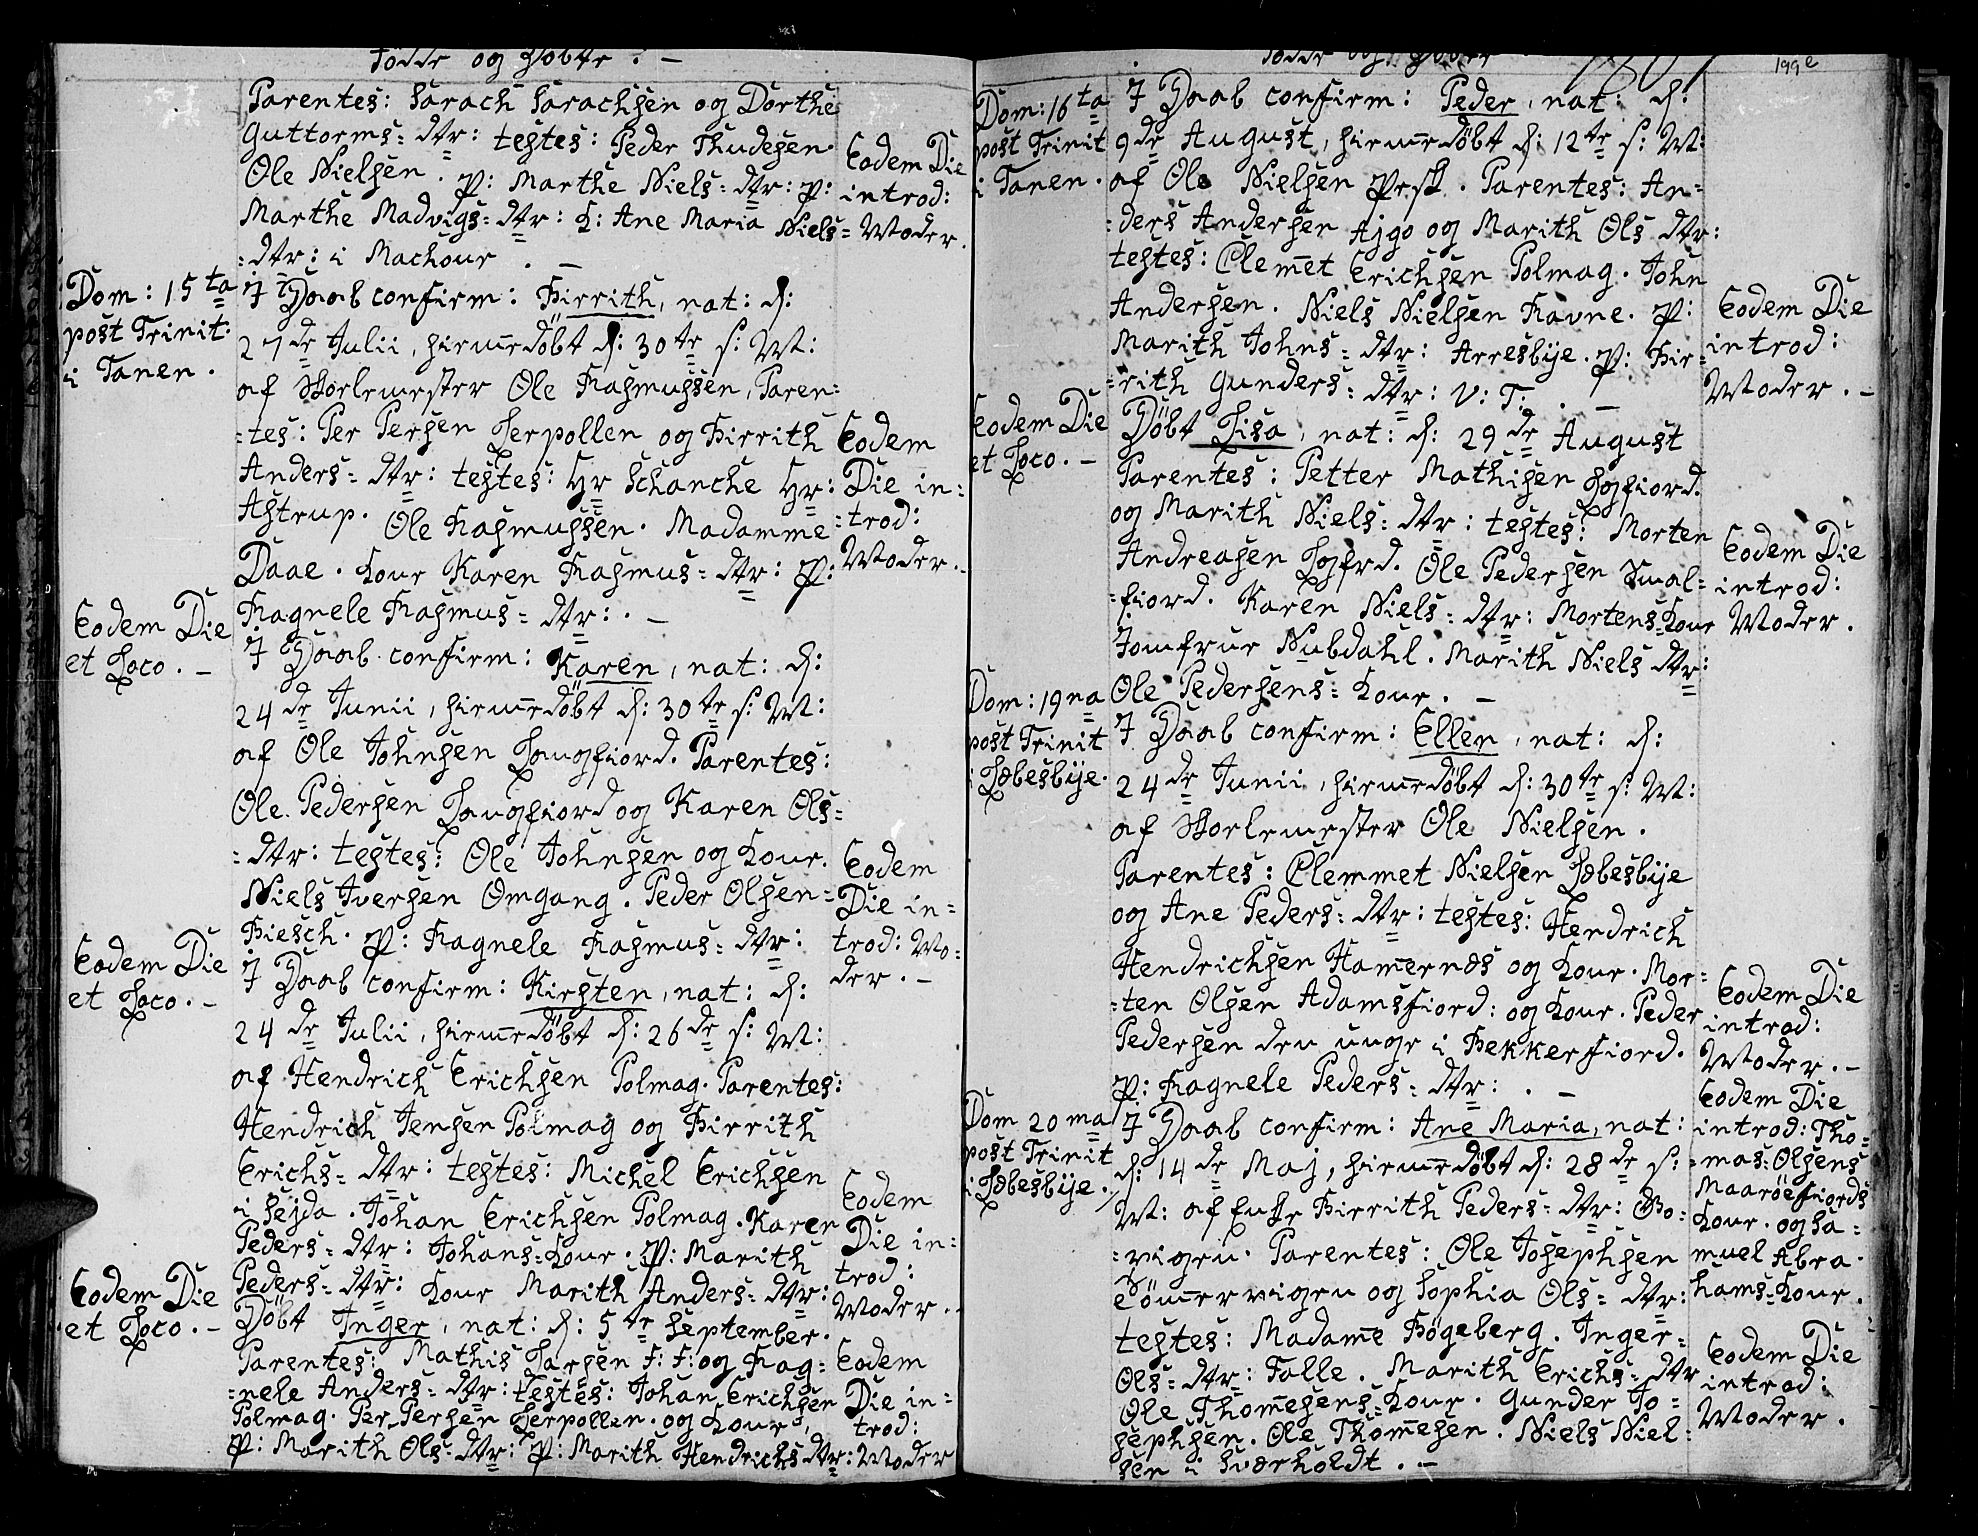 Fødde og Døbte: —
Parentes: Sarach Sarachsen og Dorthe
Guttorms= dtr: testes: Peder Thudesen
Ole Nielsen. P: Marthe Niels= dtr: P:
Marthe Madvigs= dtr: K: Ane Maria Niels=
=dtr: i Machour. —
Eodem Die
introd:
Moder.
Dom: 15ta
post Trinit:
i Tanen.
I Daab confirm: Birrith, nat: d:
27de Julii, hiemedöbt d: 30te s: M:
af Skolemester Ole Rasmussen, Paren=
=tes: Per Persen Lerpollen og Birrith
Anders= dtr: testes: Hr Schanche Hr:
Astrup. Ole Rasmussen. Madamme
Daae. Kone Karen Rasmus= dtr: P:
Ragnele Rasmus= dtr: . —
Eodem
Die in=
=trod:
Moder. —
Eodem Die
et Loco. —
I Daab confirm: Karen, nat: d:
24de Junii, hiemedöbt d: 30te s: M:
af Ole Johnsen Langfiord. Parentes:
Ole Pedersen Langfiord og Karen Ols=
=dtr: testes: Ole Johnsen og Kone.
Niels Iversen Omgang. Peder Olsen=
Biesch. P: Ragnele Rasmus= dtr:
Eodem
Die in=
trod: Mo=
der. —
Eodem Die
et Loco. —
I Daab confirm: Kirsten, nat: d:
24de Julii, hiemedöbt d: 26de s: M:
af Hendrich Erichsen Polmag. Parentes:
Hendrich Jensen Polmag og Birrith
Erichs= dtr: testes: Michel Erichsen
i Sejda. Johan Erichsen Polmag. Karen
Peders= dtr: Johans=Kone. P: Marith
Peders= dtr: Kone Marith Anders= dtr:
Eodem
Die in=
trod:
Moder. —
Eodem Die
et Loco. —
Döbt Inger, nat: d: 5te September.
Parentes: Mathis Larsen F: F: og Rag=
=nele Anders= dtr: testes: Johan Erichsen
Polmag. Per Persen Lerpollen. og Kone,
P: Marith Ols= dtr: P: Marith Hendrichs dtr:
Eodem
Die in=
trod:
Moder
Fødde og Døbte
1801
199e
Dom: 16ta
post Trinit
i Tanen.
I Daab confirm: Peder, nat: d:
9de August, hiemedöbt d: 12te s: M:
af Ole Nielsen Prsk. Parentes: An=
=ders Andersen Ajgo og Marith Ols dtr:
testes: Clemet Erichsen Polmag. John
Andersen. Niels Nielsen Ravne. P:
Marith Johns= dtr: Arresbije. P: Bir=
=rith Gunders= dtr: V: T: . —
Eodem Die
introd:
Moder. —
Eodem Die
et Loco. —
Döbt Lisa, nat: d: 29de August
Parentes: Petter Mathisen Logfiord.
og Marith Niels= dtr: testes: Morten
Andreasen Logfrd. Ole Pedersen Smal=
=fiord. Karen Niels= dtr: Mortens=Kone
Jomfrue Nubdahl. Marith Niels dtr:
Ole Pedersens= Kone. —
Eodem Die
introd:
Moder.
Dom: 19na
post Trinit
i Læbesbije.
I Daab confirm: Ellen, nat: d:
24de Junii, hiemedöbt d: 30te s: M:
af Skolemester Ole Nielsen.
Parentes: Clemmet Nielsen Læbesbije
og Ane Peders= dtr: testes: Hendrich
Hendrichsen Hamernæs og Kone. Mor=
=ten Olsen Adamsfiord: og Kone. Peder
Pedersen den unge i Bekkerfiord.
P: Ragnele Peders= dtr: . —
Eodem Die
introd:
Moder. —
Dom 20ma
post Trinit
i Læbesbije.
I Daab confirm: Ane Maria, nat:
d: 14de Maj, hiemedöbt d: 28de s:
M: af Enke Birrith Peders= dtr: Bo=
=vigen. Parentes: Ole Josephsen
Eömervigen og Sophia Ols= dtr:
testes: Madame Bögeberg. Inger=
Ols= dtr: Falle. Marith Erichs= dtr
Ole Thomesens=Kone. Gunder Jo=
sephsen. Ole Thomesen. Niels Niel=
sen i Sværholdt. —
Eodem Die
introd: Tho=
=mas=Olsens
Maaröefiords
Kone. og Sa=
muel Abra=
hams=Kone.
Eodem Die
introd:
Moder.